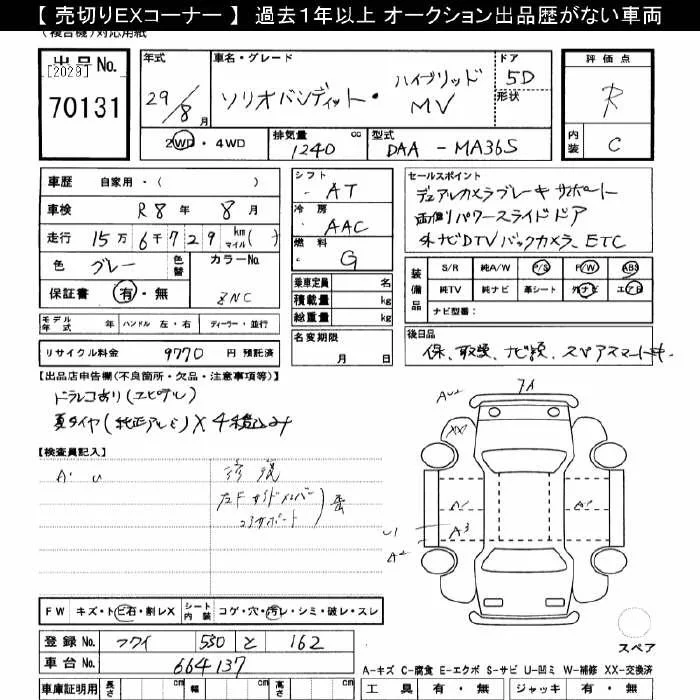 【 売切りEXコーナー 】 過去１年以上 オークション出品歴がない車両
(複合機)対応用紙
出品No.
[2029]
70131
年式
29/8月
車名・グレード
ソリオバンディット・ハイブリッドMV
ドア
形状
5D
評価点
R
内装
C
2WD・4WD
排気量
1240 cc
型式
DAA - MA36S
車歴 自家用・( )
車検 R8年 8月
走行 15万6千729 km マイル( )
色 グレー
色替
カラーNo.
ZNC
保証書 有・無
シフト
AT
冷房
AAC
燃料
G
乗車定員 名
積載量 kg
総重量 kg
セールスポイント
デュアルカメラブレーキサポート
両側パワースライドドア
外ナビDTVバックカメラ、ETC
装備品
S/R 純A/W P/S P/W ABS
純TV 純ナビ 革シート 外ナビ エアB
ナビ型番：
モデル年式 年 ハンドル 左・右 ディーラー・並行
リサイクル料金 9770 円 預託済
名変期限
月 日
後日品
保、取説、ナビ説、スペアスマートキー
【出品店申告欄(不良箇所・欠品・注意事項等)】
ドラレコあり(ユピテル)
夏タイヤ(純正アルミ)×4積込み
【検査員記入】
A・U
修復
左Fサイドメンバー
コアサポート
AU2
7A
XX
A1
A2
U1
A3
A2
FW キズ・トビ石・割レX
シート内装 コゲ・穴・汚レ・シミ・破レ・スレ
登録No. フクイ 530 と 162
車台No. 664137
スペア
A-キズ C-腐食 E-エクボ S-サビ U-凹ミ W-補修 XX-交換済
車庫証明用 長さ cm 幅 cm 高さ cm
工具 有・無 ジャッキ 有・無